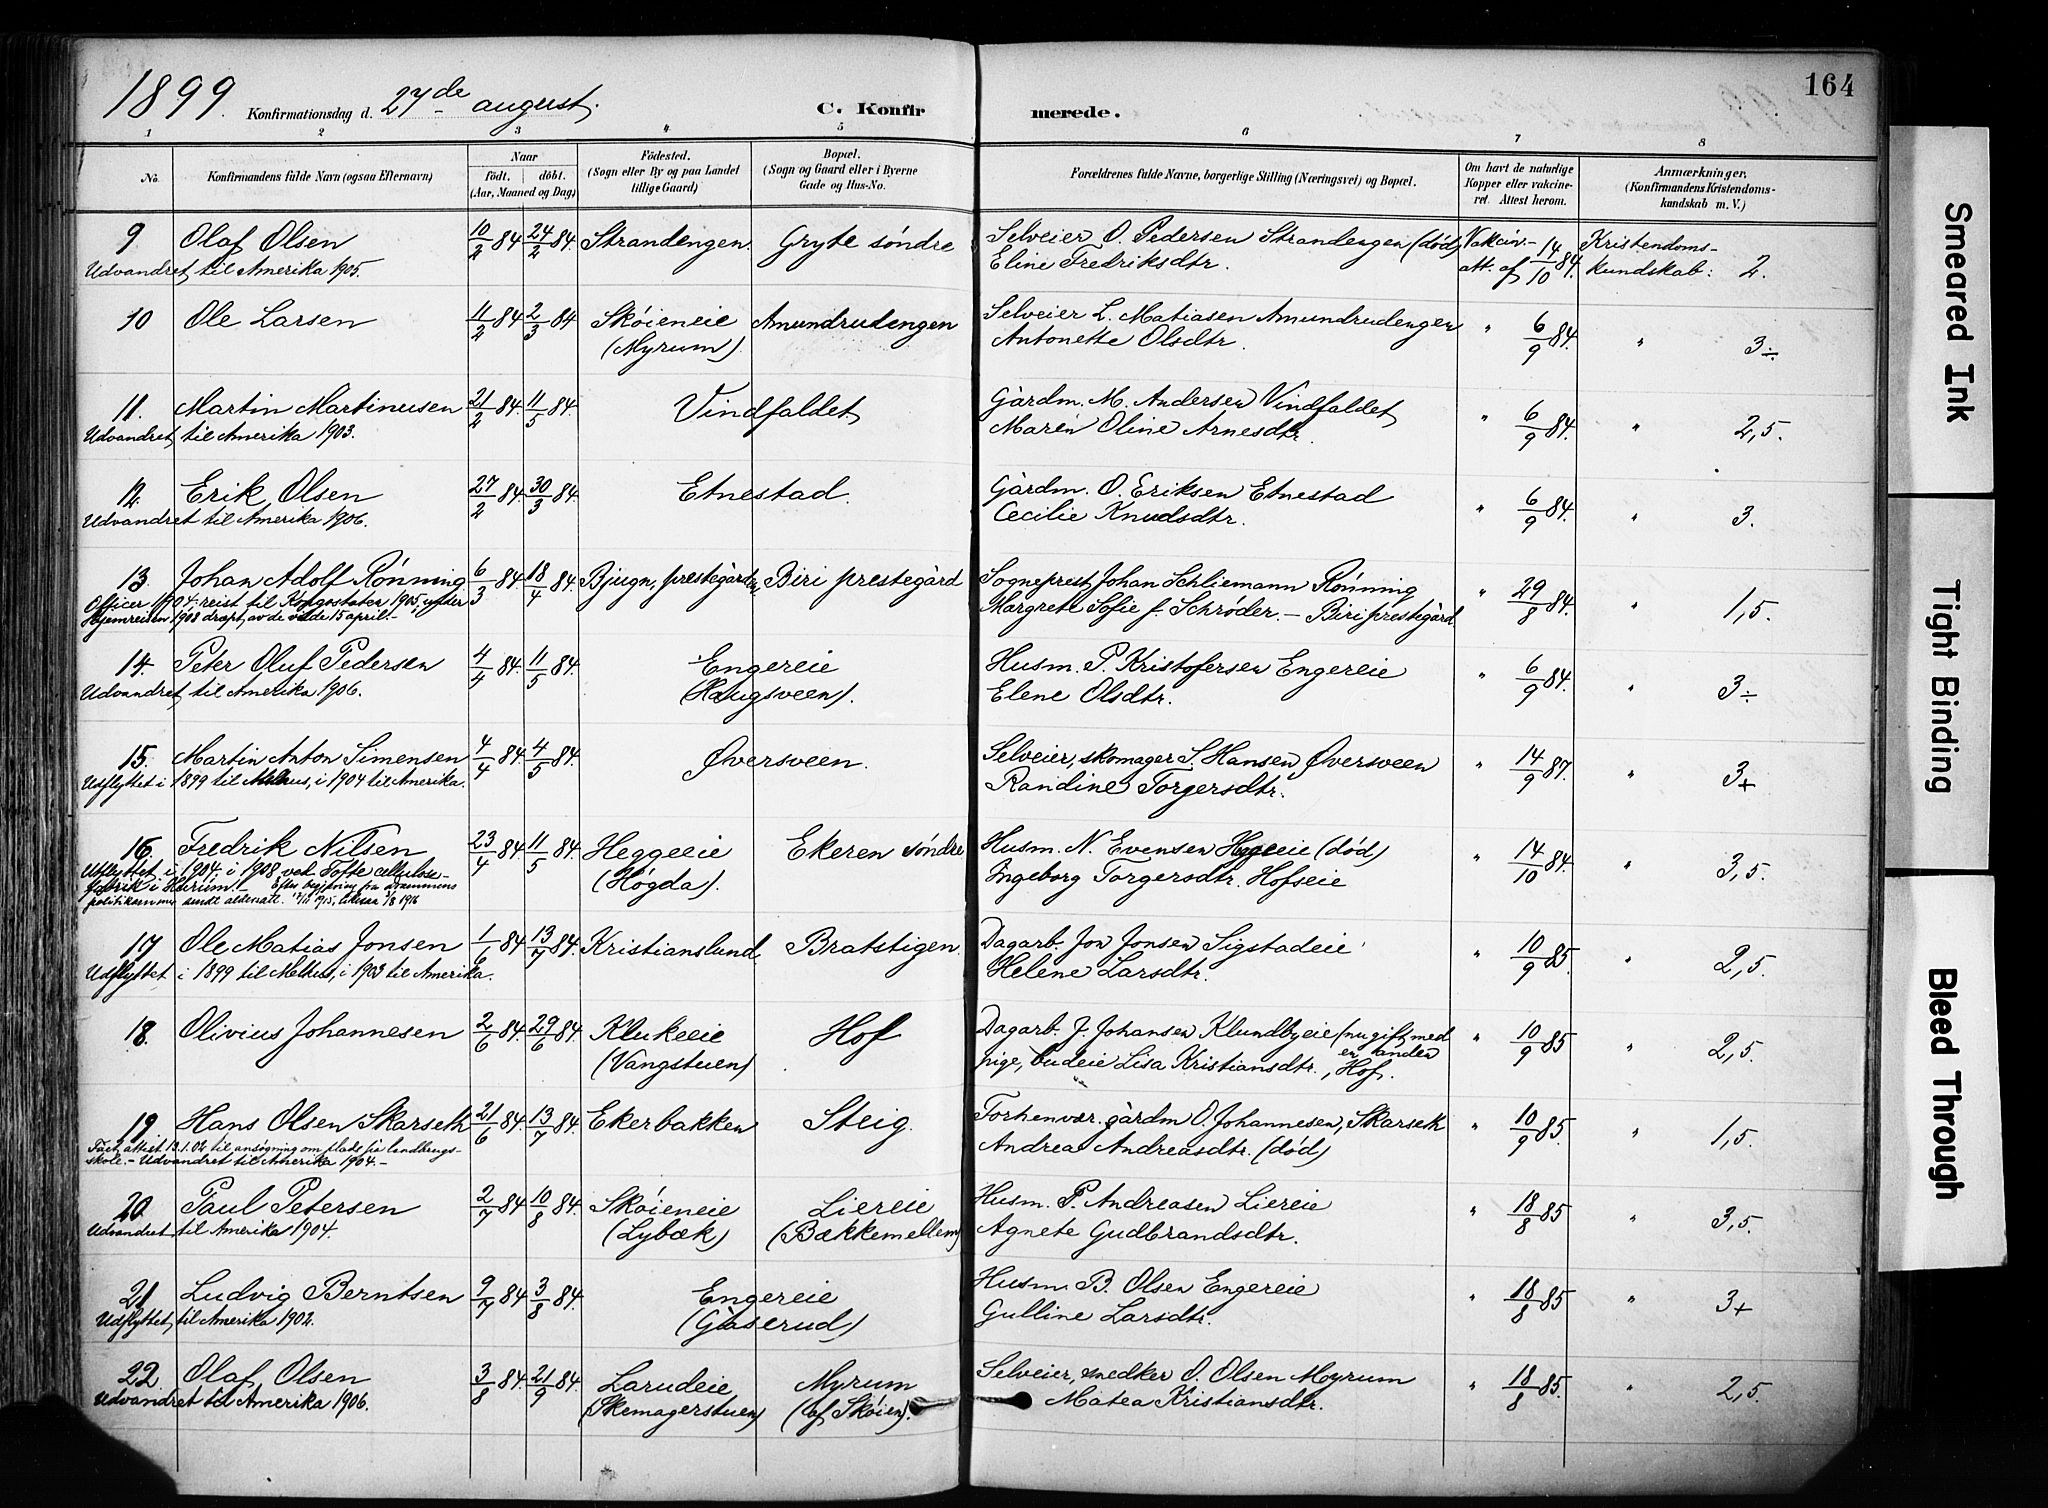 164
1899. Konfirmationsdag d. 27de august. C. Konfirmerede.
1 2 3 4 5 6 7 8
No. Konfirmandens fulde Navn (ogsaa Efternavn) Naar födt. döbt. (Aar, Maaned og Dag) Födested. (Sogn eller By og paa Landet tillige Gaard) Bopæl. (Sogn og Gaard eller i Byerne Gade og Hus-No. Forældrenes fulde Navne, borgerlige Stilling (Næringsvei) og Bopæl. Om havt de naturlige Kopper eller vakcineret. Attest herom. Anmærkninger. (Konfirmandens Kristendomskundskab m. V.)
9 Olaf Olsen 10/2 84 24/2 84. Strandengen. Gryte søndre Selveier O. Pedersen Strandengen (død) Vakcin.- Kristendoms-
Udvandret til Amerika 1905. Eline Fredriksdtr. att. af 14/10 84. kundskab: 2.
10 Ole Larsen 11/2 84 2/3 84 Skøieneie Amundrudengen Selveier L. Matiasen Amundrudengen " 6/9 84. " 3÷
(Myrum). Antonette Olsdtr.
11. Martin Martinusen 21/2 84. 11/5 84. Vindfaldet Gårdm. M. Andersen Vindfaldet " 6/9 84. " 2,5.
Udvandret til Amerika 1903. Maren Oline Arnesdtr.
12. Erik Olsen 27/2 84. 30/3 84. Etnestad. Gårdm. O. Eriksen Etnestad " 6/9 84. " 3.
Udvandret til Amerika 1906. Cecilie Knudsdtr.
13. Johan Adolf Rønning 6/3 84. 18/4 84. Bjugn, prestegården, Biri prestegård Sogneprest Johan Schliemann Rønning " 29/8 84. " 1,5.
Officer 1904, reist til Kongostaten 1905, under Margrete Sofie f. Schrøder. - Biri prestegård.
Hjemreisen 1908 dræpt av de vilde 15 april.-
14. Peter Oluf Pedersen 4/4 84. 11/5 84. Engereie Husm. P. Kristofersen Engereie " 6/9 84. " 3÷
Udvandret til Amerika 1906. (Haugsveen). Elene Olsdtr.
15. Martin Anton Simensen 4/4 84. 4/5 84. Øversveen. Selveier, skomager S. Hansen Øversveen " 14/9 87. " 3+
Udflyttet i 1899 til Melhus, i 1904 til Amerika. Randine Torgersdtr.
16. Fredrik Nilsen 23/4 84 11/5 84. Heggeeie Ekeren søndre Husm. N. Evensen Heggeeie (død) " 14/10 84. " 3,5.
Udflyttet i 1904. i 1908 ved Tofte cellulose- (Høgda). Ingeborg Torgersdtr. Hofseie
fabrik i Hurum.- Efter begjæring fra Drammens
politikammer sendt aldersatt.
17 Ole Matias Jonsen 1/6 84 13/7 84. Kristianslund Bratstigen. Dagarb. Jon Jonsen Sigstadeie " 10/9 85. " 2,5.
Udflyttet i 1899 til Melhus, i 1903 til Amerika. Helene Larsdtr.
18. Olivius Johannesen 2/6 84. 29/6 84. Klukeeie Hof Dagarb. J. Johansen Klundbyeie (nu gift med " 10/9 85 " 2,5.
(Vangstuen) en anden
pige, budeie Lisa Kristiansdtr., Hof.
19. Hans Olsen Skarseth 21/6 84. 13/7 84. Ekerbakken Steig. Forhenvær. gårdm O. Johannesen, Skarseth " 10/9 85. " 1,5.
Fået attest 13.1.02 til ansøgning om plads på landbrugs- Andrea Andreasdtr. (død)
skole.- Udvandret til Amerika 1904.-
20. Paul Petersen 2/7 84 10/8 84. Skøieneie Liereie Husm. P. Andreasen Liereie " 18/8 85 " 3,5.
Udvandret til Amerika 1904. (Lybæk) (Bækkemellem) Agnete Gudbrandsdtr.
21 Ludvig Berntsen 9/7 84 3/8 84. Engereie Husm. B. Olsen Engereie " 18/8 85 " 3+
Udflyttet til Amerika 1902. (Gåserud) Gulline Larsdtr.
22 Olaf Olsen 3/8 84. 21/9 84. Larudeie Myrum Selveier, snedker O. Olsen Myrum " 18/8 85. " 2,5.
Udvandret til Amerika 1906. (Skomagerstuen) (af Skøien). Matea Kristiansdtr.
Smeared Ink
Tight Binding
Bleed Through